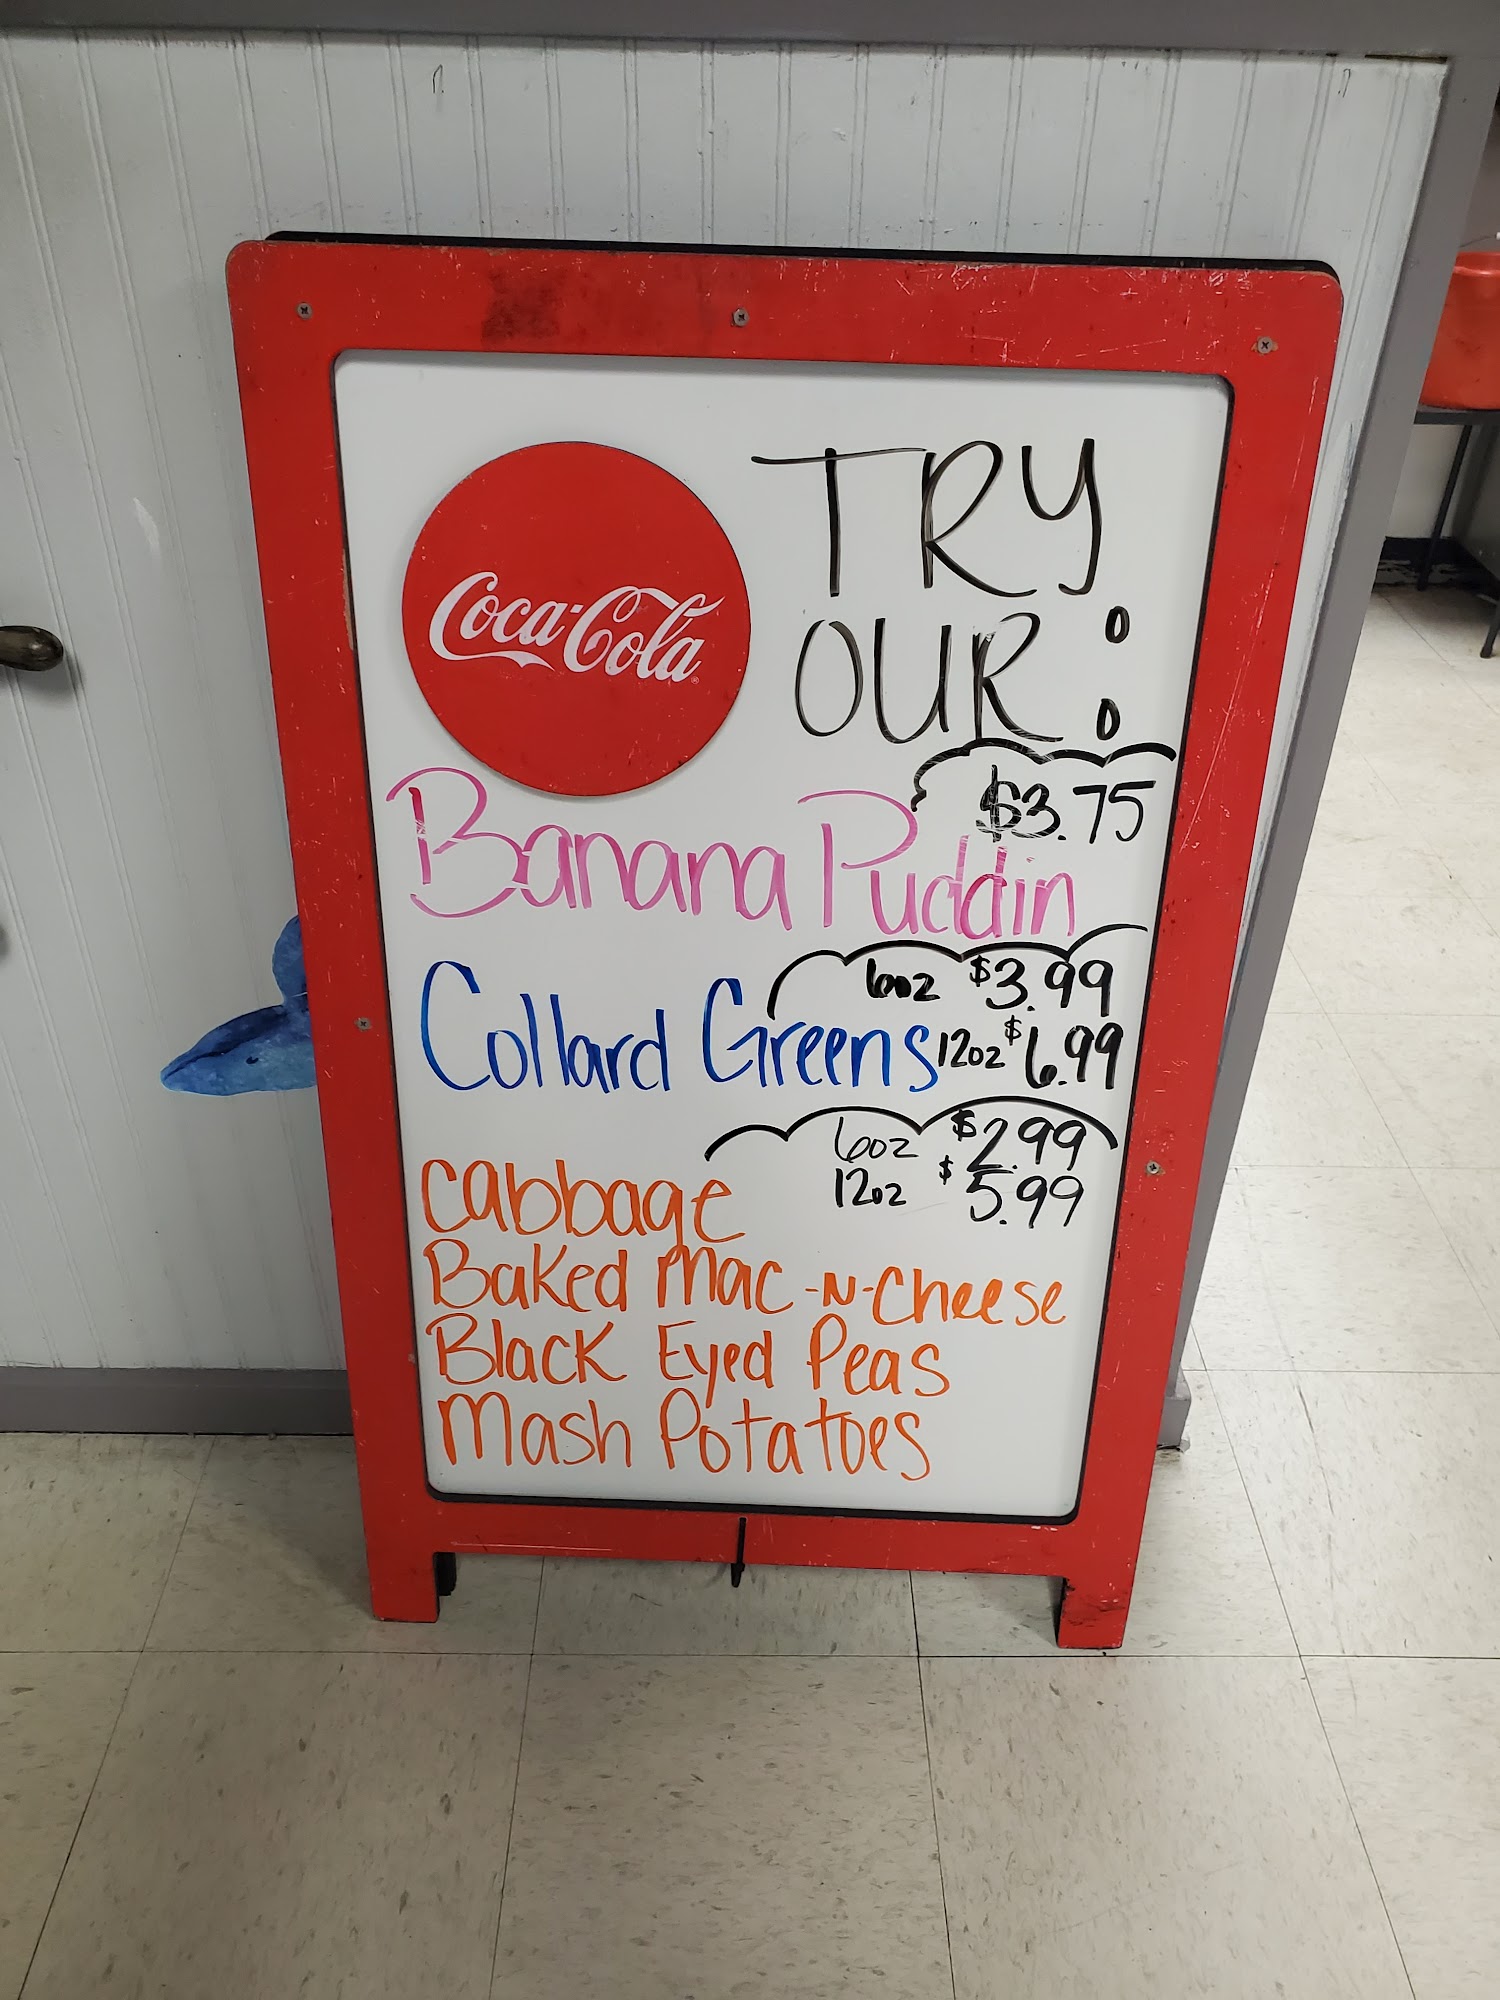 Coca-Cola
TRY
OUR:
$3.75
Banana Puddin
6oz $3.99
Collard Greens 12oz $6.99
6oz $2.99
12oz $5.99
cabbage
Baked Mac-N-Cheese
Black Eyed Peas
Mash Potatoes